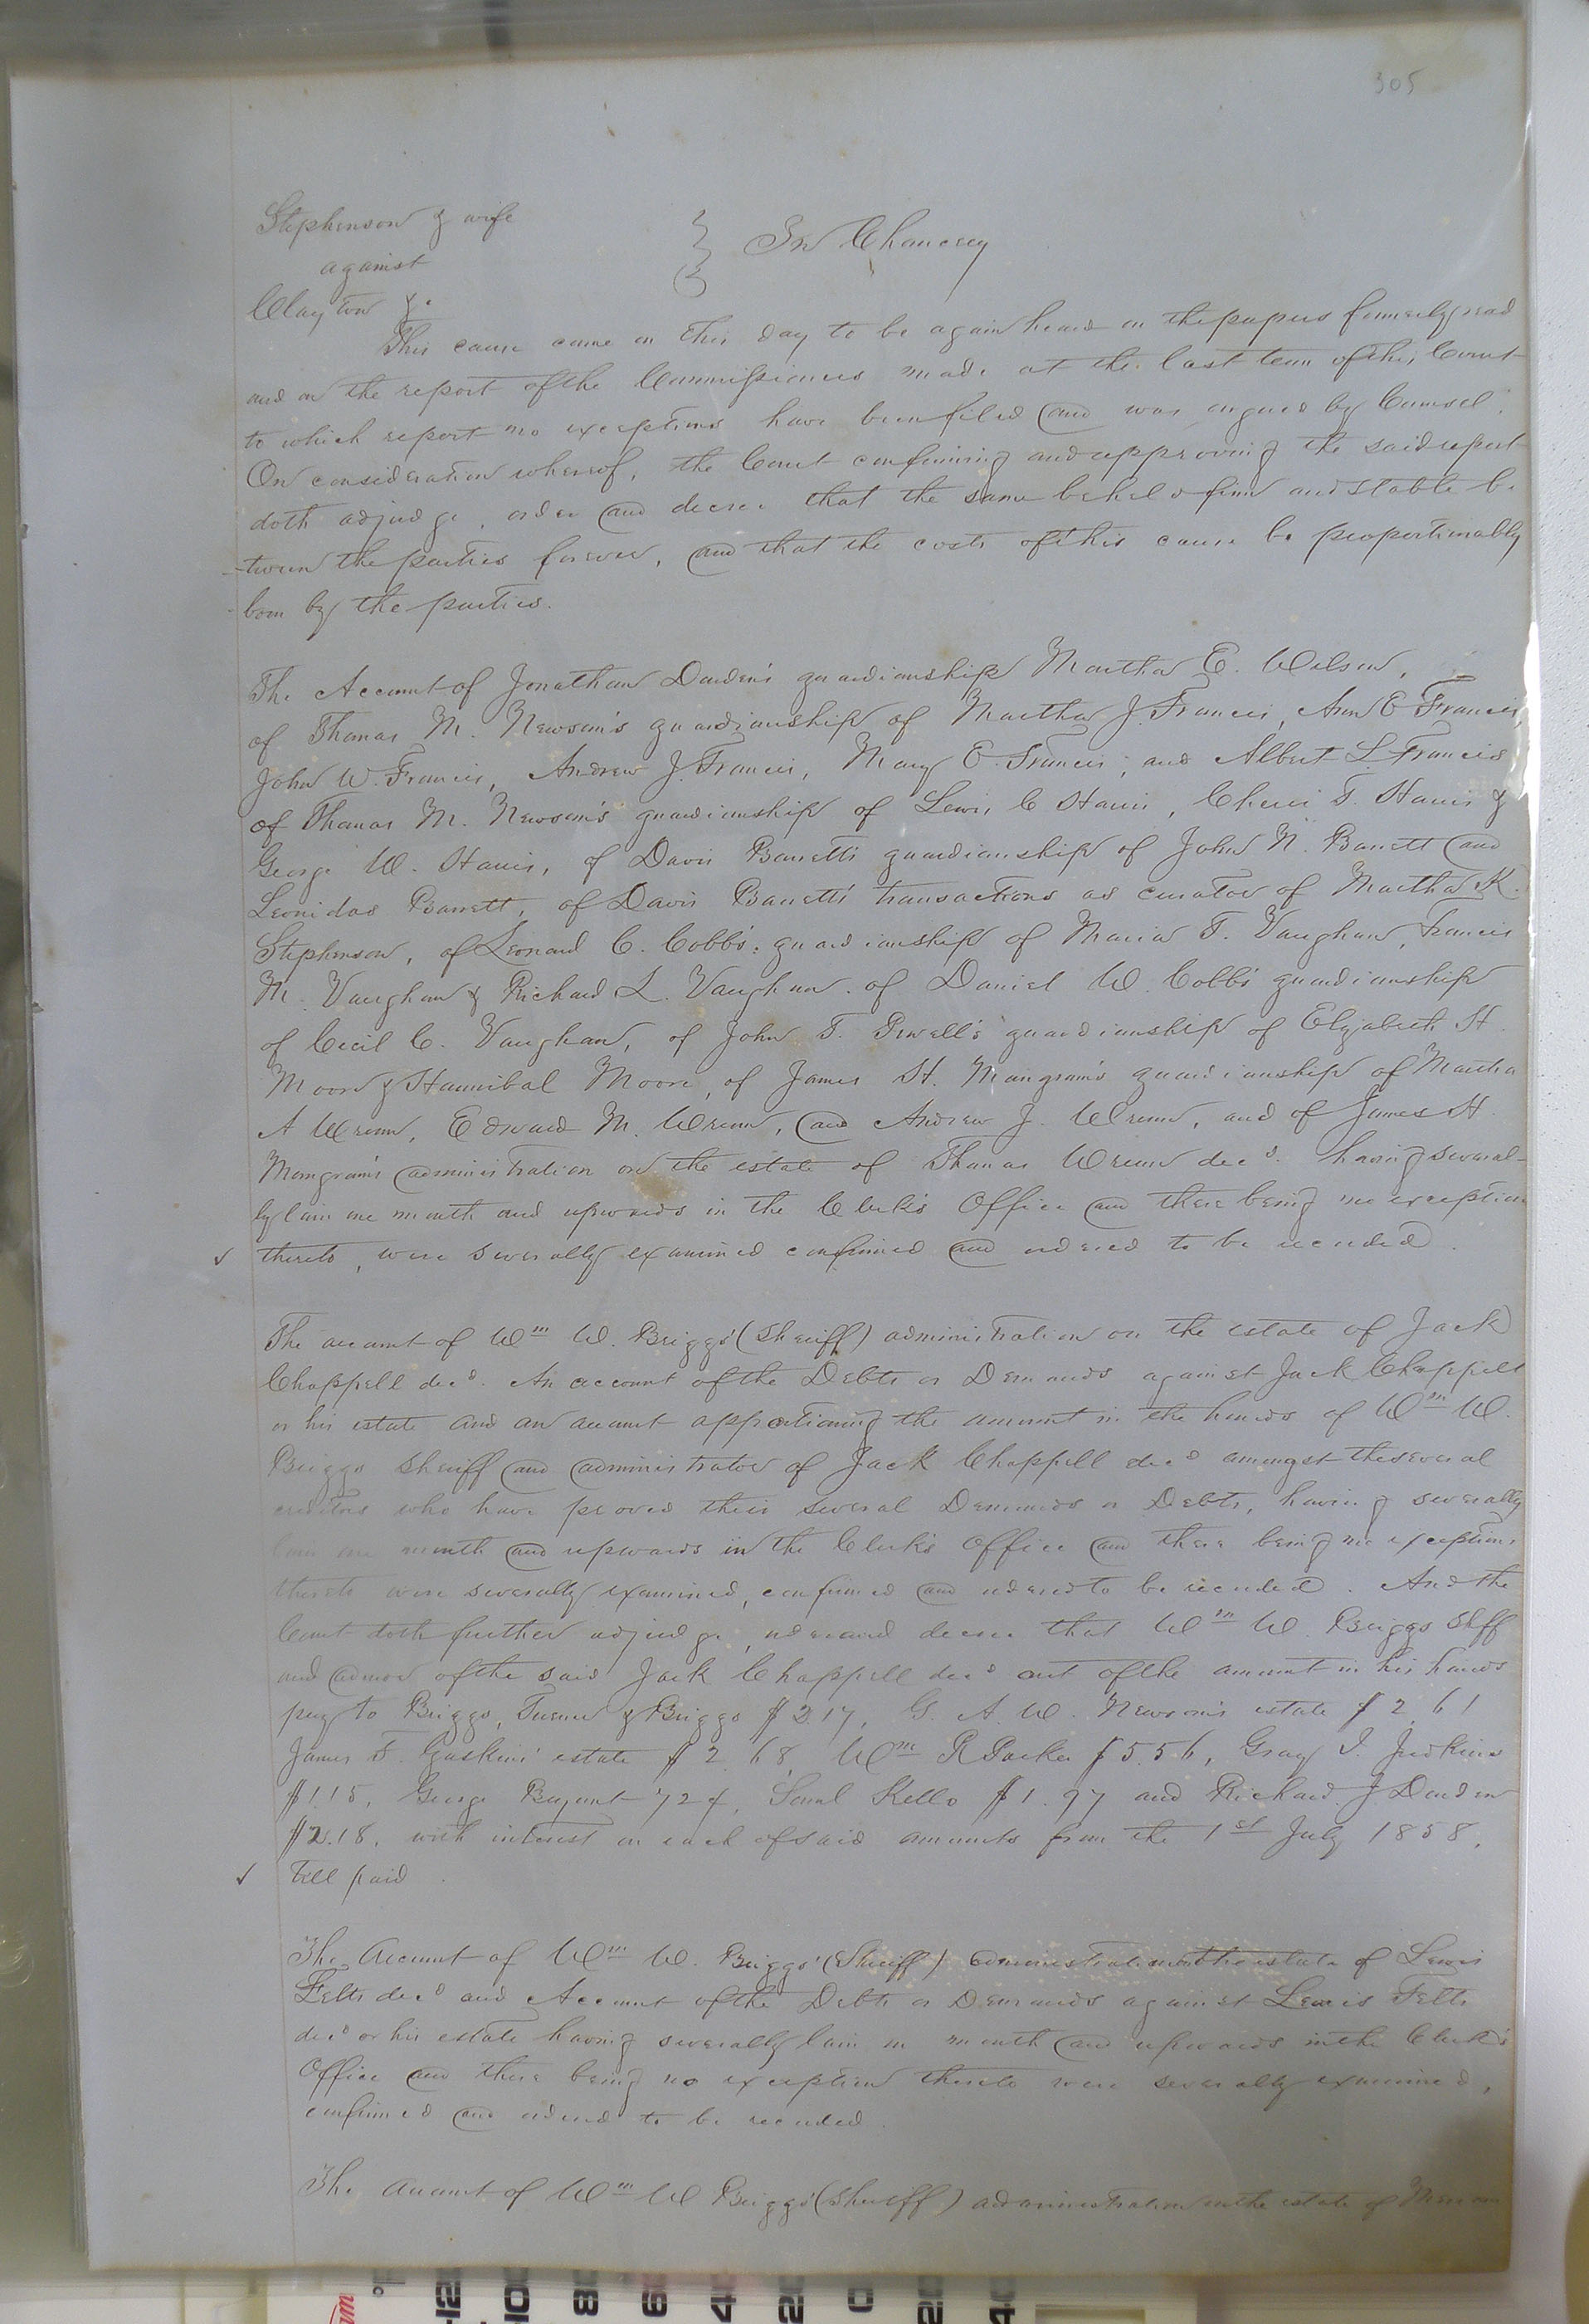 305
Stephenson & wife
against } In Chancery
Clayton &c
This cause came on this day to be again heard on the papers formerly read
and on the report of the Commissioners made at the last term of this Court
to which report no exceptions have been filed and was argued by Counsel.
On consideration whereof, the Court confirming and approving the said report
doth adjudge, order and decree that the same be held firm and stable be
-tween the parties forever, and that the costs of this cause be proportionably
born by the parties.
The Account of Jonathan Darden's guardianship Martha E. Wilson,
of Thomas M. Newsom's guardianship of Martha J. Francis, Ann E Francis
John W. Francis, Andrew J. Francis, Mary E. Francis, and Albert L Francis
of Thomas M. Newsom's guardianship of Lewis C Harris, T. Harris &
George W. Harris, of Davis Barrett's guardianship of John N. Barrett and
Leonidas Barrett, of Davis Barrett's transactions as curator of Martha K.
Stephenson, of Leonard C. Cobb's guardianship of Maria T. Vaughan, Francis
M. Vaughan & Richard L. Vaughan. of Daniel W. Cobb's guardianship
of Cecil C. Vaughan, of John T. guardianship of Elizabeth H.
Moore & Hannibal Moore, of James H. Mangram's guardianship of Martha
A Wrenn, Edward M. Wrenn, and Andrew J. Wrenn, and of James H.
Mangram's administration on the estate of Thomas Wrenn decd. having several-
ly lain one month and upwards in the Clerk's Office and there being no exception
thereto, were severally examined confirmed and ordered to be recorded.
The account of Wm W. Briggs' (Sheriff) administration on the estate of Jack
Chappell decd. An account of the Debts or Demands against Jack Chappell
or his estate and an account apportioning the amount in the hands of Wm W.
Briggs Sheriff and administrator of Jack Chappell decd amongst the several
creditors who have proved their several Demands or Debts, having severally
lain one month and upwards in the Clerk's Office and there being no exceptions
thereto were severally examined, confirmed and ordered to be recorded. And the
Court doth further adjudge, order and decree that Wm W. Briggs Shff
and admor of the said Jack Chappell decd out of the amount in his hands
pay to Briggs, Turner & Briggs $2.17, G. A. W. Newsom's estate $2.61
James F. Gaskins' estate $2.68, Wm R Parker $5.56, Gray J. Judkins
$1.15, George Bryant 72¢, Saml Kello $1.97 and Richard J Darden
$2.18, with interest on each of said amounts from the 1st July 1858,
till paid.
The Account of Wm W. Briggs' (Sheriff) administration on the estate of Lewis
Felts decd and Account of the Debts or Demands against Lewis Felts
decd or his estate having severally lain on month and upwards in the Clerk's
Office and there being no exception thereto were severally examined,
confirmed and ordered to be recorded.
The Account of Wm W Briggs' (Sheriff) administration on the estate of